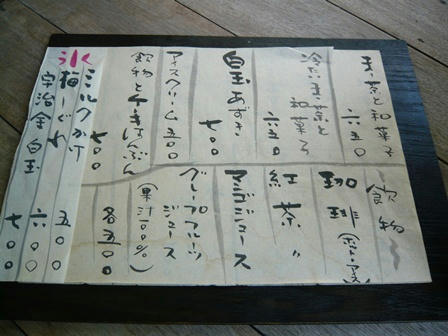 茶と和菓子
六五〇
冷たい
茶と
和菓子
六五〇
白玉あずき
七〇〇
アイスクリーム 五〇〇
飲物と
はんぶん
七〇〇
飲物
珈琲(ホット・アイス)
紅茶 〃
ジュース
グレープフルーツ
ジュース
(果汁100%)
各五〇〇
氷
ミルクかけ 五〇〇
梅しぐれ 六〇〇
宇治金白玉 七〇〇